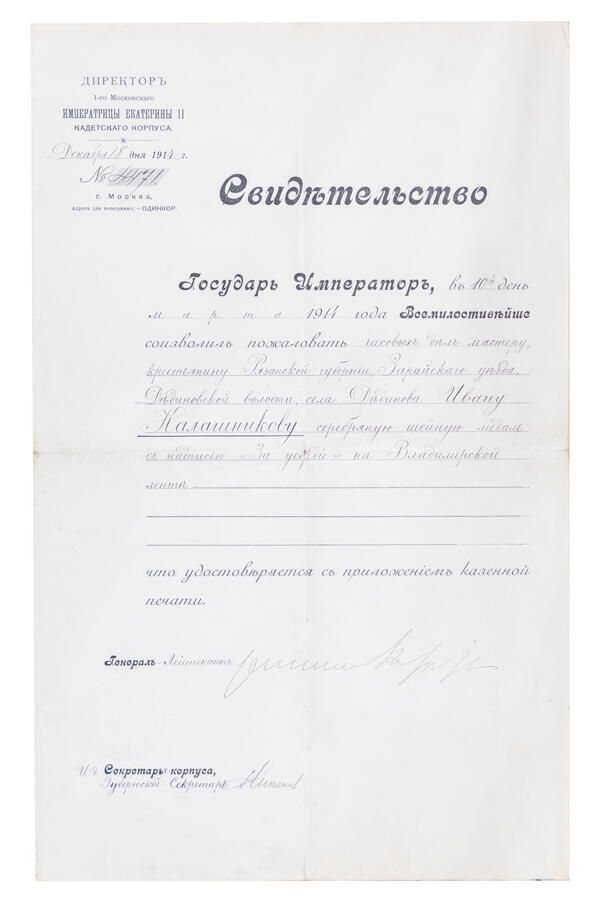 ДИРЕКТОРЪ
1-го Московскаго
ИМПЕРАТРИЦЫ ЕКАТЕРИНЫ II
КАДЕТСКАГО КОРПУСА.
Декабря 18 дня 1914 г.
№ 4471
г. Москва.
Адресъ для телеграммъ:—ОДИНКОР.
Свидѣтельство
Государь Императоръ, въ 10й день
марта 1914 года Всемилостивѣйше
соизволилъ пожаловать часовыхъ дѣлъ мастеру,
крестьянину Рязанской губернiи, Зарайскаго уѣзда,
Дѣдиновской волости, села Дѣдинова Ивану
Калашникову серебряную шейную медаль
съ надписью „За усердiе" на Владимiрской
лентѣ
что удостовѣряется съ приложенiемъ казенной
печати.
Генералъ-Лейтенантъ
И. д. Секретаря корпуса,
Губернскiй Секретарь